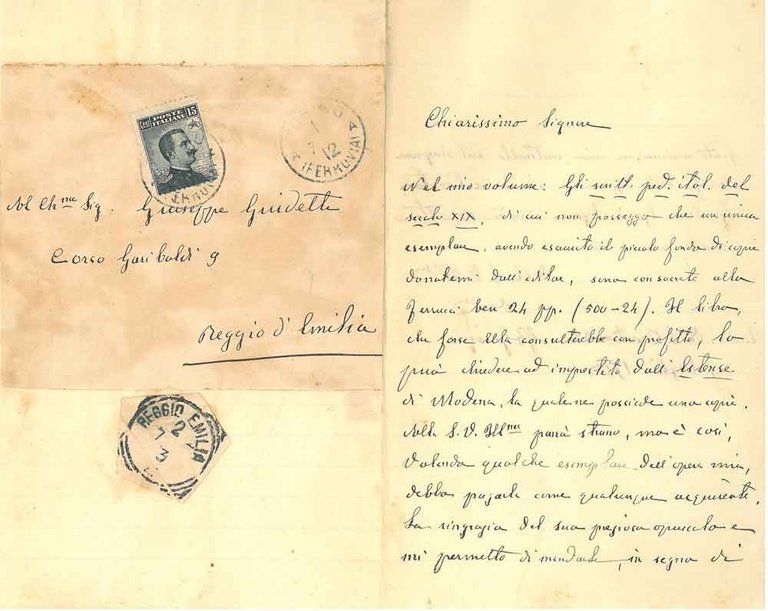 POSTE ITALIANE
Cent 15
12
(FERROVIA)
Al Ch.mo Sig. Giuseppe Guidetti
Corso Garibaldi 9
Reggio d'Emilia
REGGIO EMILIA
2
7 3
Chiarissimo Signore
Nel mio volume: Gli scritt. ped. ital. del
secolo XIX, di cui non posseggo che un'unica
esemplare, avendo esaurito il piccolo fondo di copie
donatemi dall'editore, sono consacrate alla
Ferrucci ben 24 pp. (500-24). Il libro,
che forse Ella consulterebbe con profitto, lo
può chiedere ad imprestito dall'Estense
di Modena, la quale ne possiede una copia.
Alla S. V. Ill.ma parrà strano, ma è così,
Volendo qualche esemplare dell'opera mia,
debbo pagarla come qualunque acquirente.
La ringrazio del suo pregioso opuscolo e
mi permetto di mandarle, in segno di